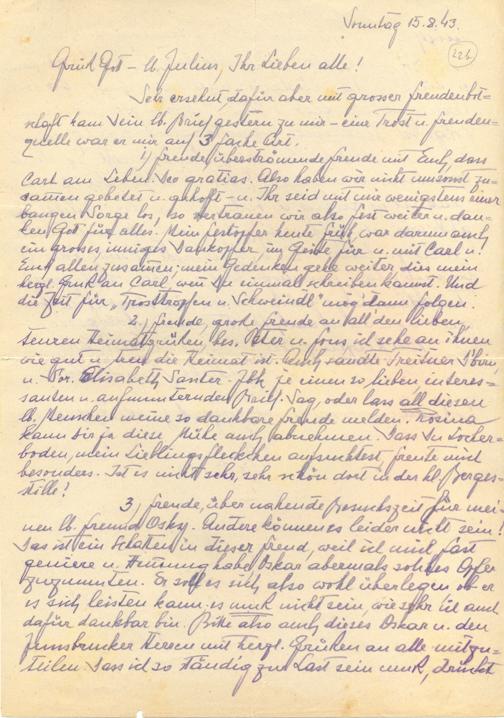 Sonntag 15.8.43.
226
Grüß Gott – lb. Julius, Ihr Lieben alle!
Sehr ersehnt dafür aber mit grosser Freudenbot=
schaft kam Dein lb. Brief gestern zu mir – eine Trost u. Freuden=
quelle war er mir auf 3 fache Art.
1) Freude, überströmende Freude mit Euch, dass
Carl am Leben. Deo gratias. Also haben wir nicht umsonst zu=
samen gebetet u. gehofft – u. Ihr seid mit mir wenigstens einer
bangen Sorge los, so vertrauen wir also fest weiter u. dan=
ken Gott für alles. Mein Festopfer heute früh, war darum auch
ein grosses, inniges Dankopfer, im Geiste für u. mit Carl u.
Euch allen zusamen; mein Gedenken gehe weiter dies mein
herzl. Gruß an Carl, wenn Du einmal schreiben kannst. Und
die Zeit für „Trosttropfen u. Schweindl" mög' dann folgen.
2) Freude, große Freude an all' den lieben,
teuren Heimatgrüßen, bes. Peter u. Fons, ich sehe an ihnen
wie gut u. treu die Heimat ist. Auch sandte
u. Elisabeth je einen so lieben, interes=
santen u. aufmunternden Brief. Sag, oder lass all diesen
lb. Menschen meine so dankbare Freude melden. Rosina
kann dir ja diese Mühe auch abnehmen. Dass Du Locher=
boden, mein Lieblingsfleckchen aufsuchtest, freute mich
besonders. Ist es nicht sehr, sehr schön dort in der hl. Berges=
stille!
3, Freude, über nahende Besuchszeit für mei=
nen lb. Freund Osky. Andere können es leider nicht sein!
Das ist ein Schatten in dieser Freud, weil ich mich fast
geniere u. Hemmung habe Oskar abermals solches Opfer
zuzumuten. Er soll es sich also wohl überlegen ob er
es sich leisten kann. Es muß nicht sein, wie sehr ich auch
dafür dankbar bin. Bitte also auch dieses Oskar u. den
Innsbrucker Herren mit herzl. Grüßen an alle mitzu=
teilen. Dass ich so ständig zur Last sein muß, drückt